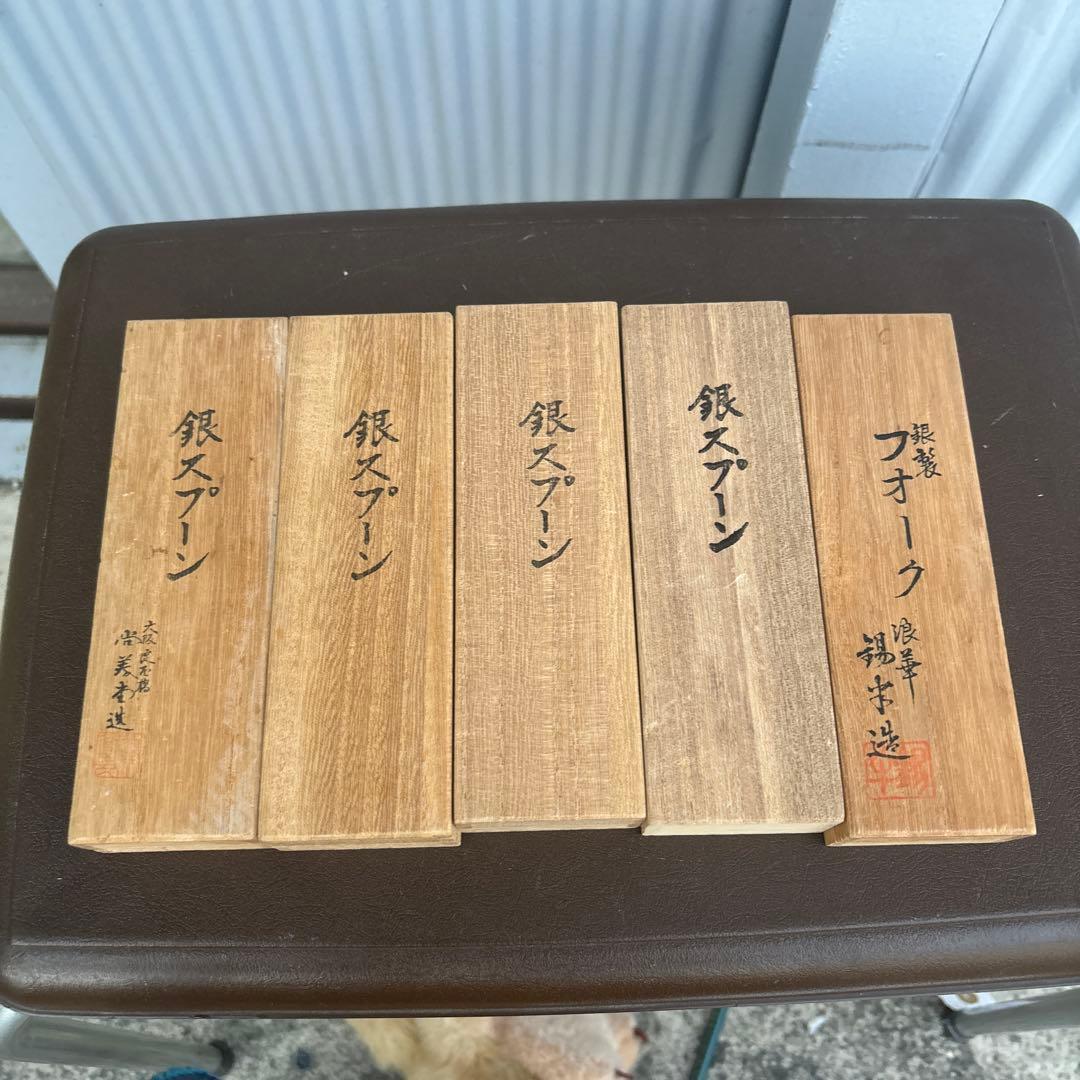 銀スプーン
大阪
尚美堂造
銀スプーン
銀スプーン
銀スプーン
銀製
フオーク
浪華
錫半造